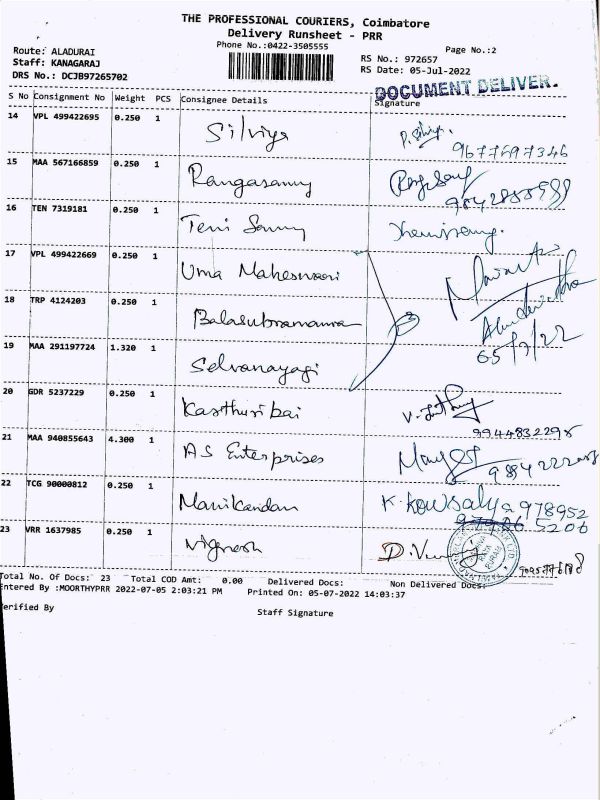 THE PROFESSIONAL COURIERS, Coimbatore
Delivery Runsheet - PRR
Phone No.:0422-3505555
Page No.:2
Route: ALADURAI
Staff: KANAGARAJ
DRS No.: DCJB97265702
RS No.: 972657
RS Date: 05-Jul-2022
DOCUMENT DELIVER.
S No Consignment No Weight PCS Consignee Details Signature
14 VPL 499422695 0.250 1 Silviya
9677697346
15 MAA 567166859 0.250 1 Rangasamy
16 TEN 7319181 0.250 1 Teni Samy
17 VPL 499422669 0.250 1 Uma Maheswari
18 TRP 4124203 0.250 1 Balasubramanian
19 MAA 291197724 1.320 1 Selvanayagi
20 GDR 5237229 0.250 1 Kasthuribai
9944832295
21 MAA 940855643 4.300 1 AS Enterprises
22 TCG 90000812 0.250 1 Manikandan K. Kowsalya 978952
5206
23 VRR 1637985 0.250 1 Vignesh
Total No. Of Docs: 23 Total COD Amt: 0.00 Delivered Docs: Non Delivered Docs:
Entered By :MOORTHYPRR 2022-07-05 2:03:21 PM Printed On: 05-07-2022 14:03:37
erified By Staff Signature